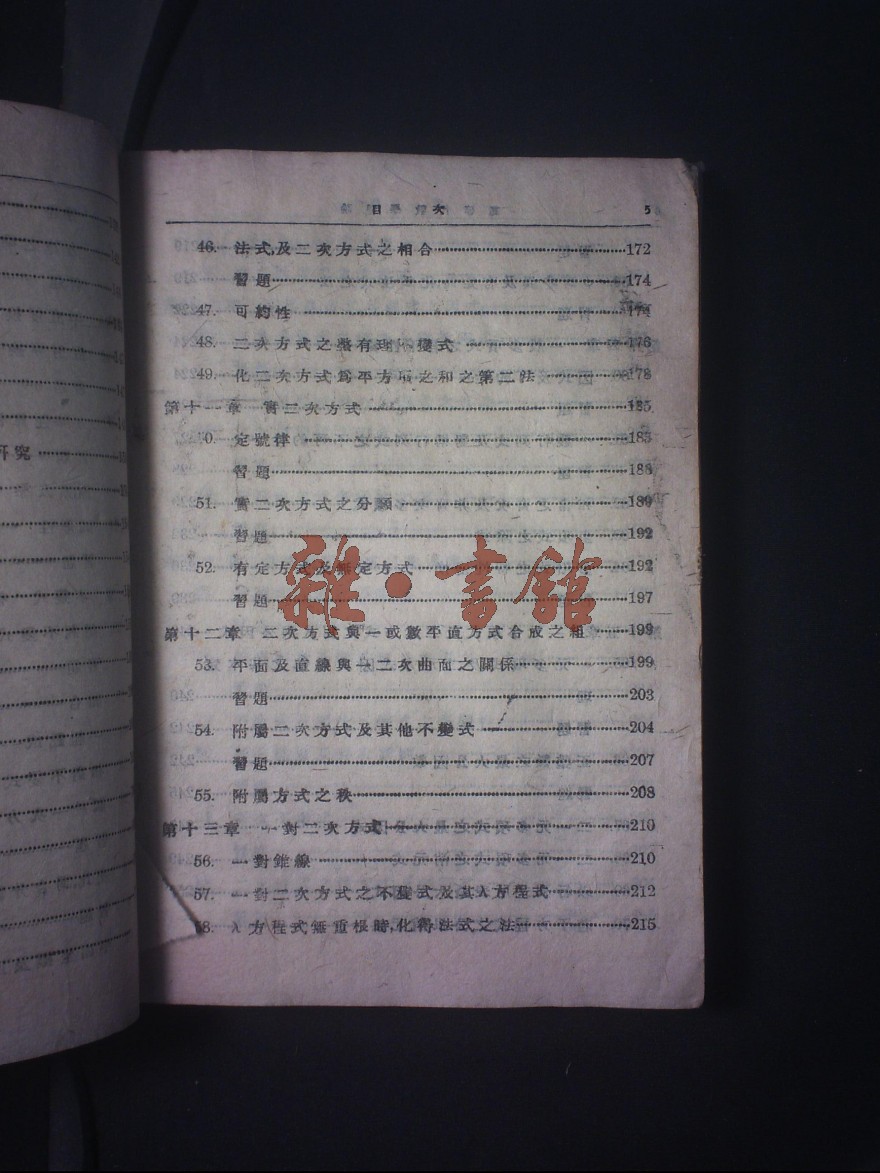 目次 5
46. 法式,及二次方式之相合 172
習題 174
47. 可約性 174
48. 二次方式之整有理不變式 176
49. 化二次方式爲平方項之和之第二法 178
第十一章 實二次方式 185
50. 定號律 185
習題 188
51. 實二次方式之分類 189
習題 192
52. 有定方式及無定方式 192
習題 197
第十二章 二次方式與一或數平直方式合成之組 199
53. 平面及直線與一二次曲面之關係 199
習題 203
54. 附屬二次方式及其他不變式 204
習題 207
55. 附屬方式之秩 208
第十三章 一對二次方式 210
56. 一對錐線 210
57. 一對二次方式之不變式及其λ方程式 212
58. λ方程式無重根時,化得法式之法 215
研究
雜·書館